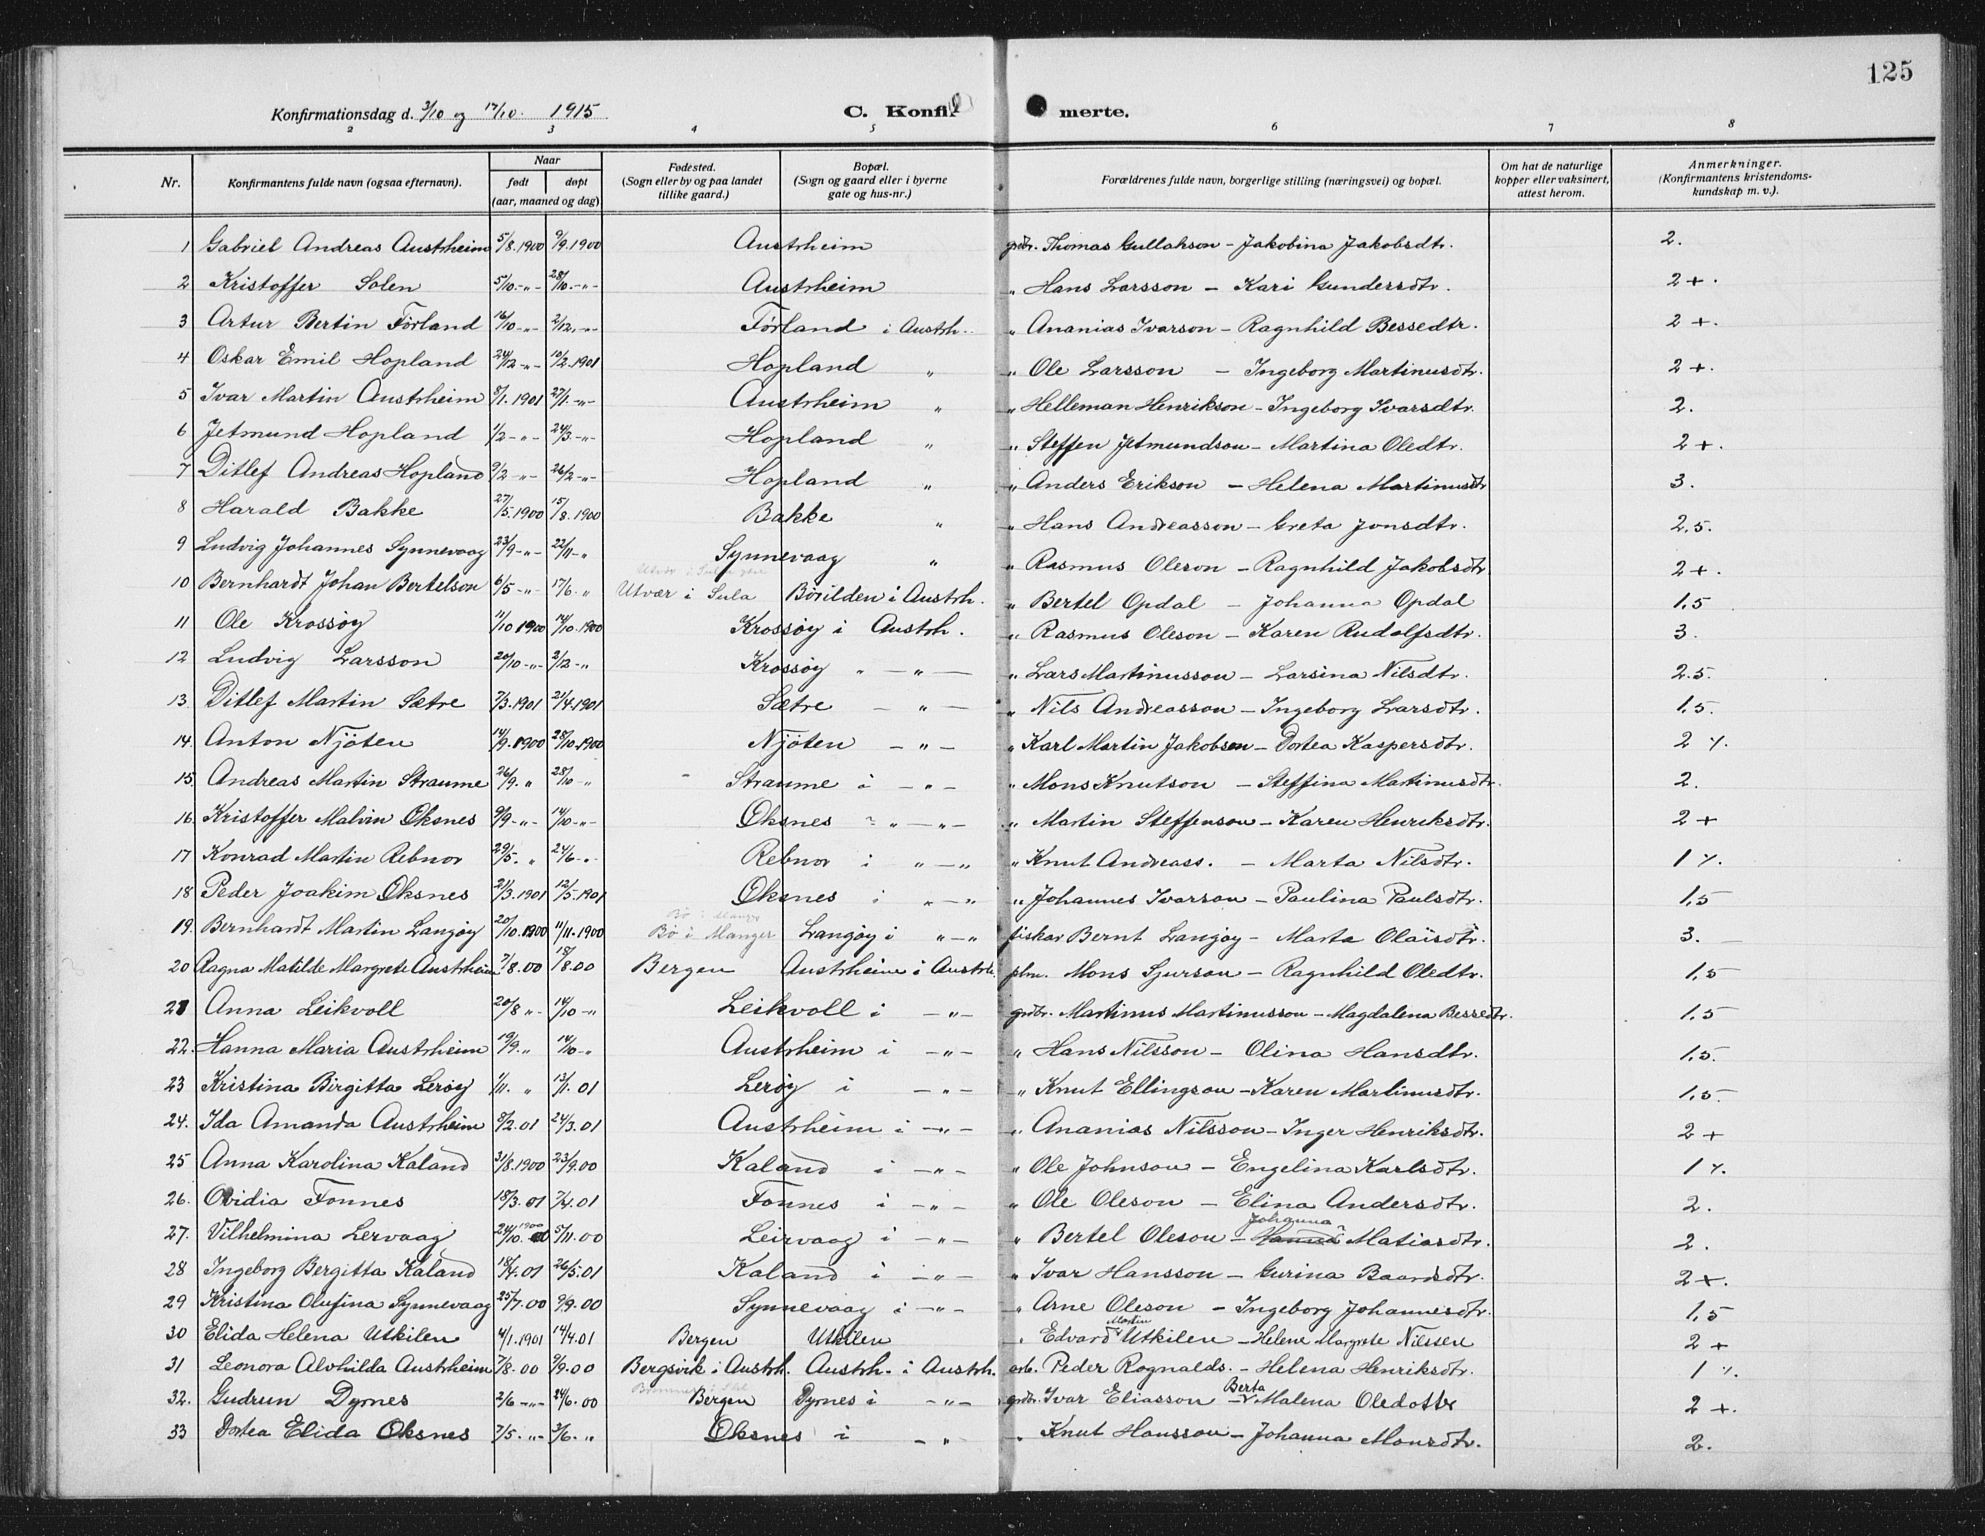 125
Konfirmationsdag d. 3/10 og 17/10. 1915 C. Konfir merte.
2 3 4 5 6 7 8
Nr. Konfirmantens fulde navn (ogsaa efternavn). Naar født døpt (aar, maaned og dag) Fødested. (Sogn eller by og paa landet tillike gaard.) Bopæl. (Sogn og gaard eller i byerne gate og hus-nr.) Forældrenes fulde navn, borgerlige stilling (næringsvei) og bopæl. Om hat de naturlige kopper eller vaksinert, attest herom. Anmerkninger. (Konfirmantens kristendomskundskap m. v.).
1 Gabriel Andreas Austrheim 5/8.1900 9/9.1900 Austrheim grdbr. Thomas Gullakson - Jakobina Jakobsdtr. 2.
2 Kristoffer Solen 5/10-"- 28/10.-"- Austrheim " Hans Larsson - Kari Gundersdtr. 2+.
3 Artur Bertin Förland 16/10-"- 2/12.-"- Førland i Austrh. " Ananias Ivarson - Ragnhild Bessedtr. 2+.
4 Oskar Emil Hopland 24/12-"- 10/2.1901 Hopland " " Ole Larsson - Ingeborg Martinusdtr. 2+.
5 Ivar Martin Austrheim 8/1.1901 27/1.-"- Austrheim " " Helleman Henrikson - Ingeborg Ivarsdtr. 2.
6 Jetmund Hopland 1/2-"- 24/3-"- Hopland " " Steffen Jetmundson - Martina Oledtr. 2+.
7 Ditlef Andreas Hopland 9/2-"- 26/2-"- Hopland " " Anders Erikson - Helena Martinusdtr 3.
8 Harald Bakke 27/5.1900 15/8.1900 Bakke " " Hans Andreasson - Greta Jonsdtr. 2.5.
9 Ludvig Johannes Synnevaag 23/9-"- 22/11-" Synnevaag " " Rasmus Oleson - Ragnhild Jakobsdtr. 2+.
10 Bernhardt Johan Bertelson 6/5-"- 17/6. " Utvær i Sula Børilden i Austrh. " Bertel Opdal - Johanna Opdal 1.5
11 Ole Krossøy 11/10 1900 14/10.1900 Krossøy i Austrh. " Rasmus Oleson - Karen Rudolfsdtr. 3.
12 Ludvig Larsson 20/10-"- 2/12-" Krossøy " - " - " Lars Martinusson - Larsina Nilsdtr. 2.5.
13. Ditlef Martin Sætre 7/3.1901 21/4.1901 Sætre - " - " Nils Andreasson - Ingeborg Larsdtr. 1.5.
14. Anton Njöten 14/9.1900 28/10.1900 Njöten - " - " Karl Martin Jakobsen - Dortea Kaspersdtr. 2 %.
15. Andreas Martin Straume 26/9. " 28/10-" Straume i - " - " Mons Knutson - Steffina Martinusdtr. 2.
16. Kristoffer Malvin Øksnes 9/9-"- 14/10-"- Øksnes " - " - " Martin Steffenson - Karen Henriksdtr. 2+
17 Konrad Martin Rebnor 29/5. " 24/6. " Rebnor i " - " " Knut Andreass. - Marta Nilsdtr. 1 %.
18 Peder Joakim Øksnes 21/3.1901 12/5.1901 Øksnes i " - " " Johannes Ivarson - Paulina Paulsdtr. 1.5
19. Bernhardt Martin Langøy 20/10.1900 11/11.1900 Bø i Manger Langøy i " - " fiskar Bernt Langøy - Marta Olaisdtr. 3.
20 Ragna Matilde Margrete Austrheim 7/8.00 18/8.00 Bergen Austrheim i Austrh. plm. Mons Sjurson - Ragnhild Oledtr. 1.5
21 Anna Leikvoll 20/8 "- 14/10-" Leikvoll i - " - grdbr. Martinus Martinusson - Magdalena Bessedtr. 1.5
22. Hanna Maria Austrheim 19/9. " 14/10-" Austrheim i - " - " Hans Nilsson - Olina Hansdtr. 1.5.
23 Kristina Birgitta Lerøy 1/11. " 13/1.01 Lerøy i - " - " Knut Ellingson - Karen Martinusdtr. 1.5.
24. Ida Amanda Austrheim 8/2.01 24/3.01 Austrheim i - " - " Ananias Nilsson - Inger Henriksdtr. 2+
25 Anna Karolina Kaland 31/8.1900 23/9.00 Kaland i - " - " Ole Johnson - Engelina Karlsdtr. 1 %.
26. Ovidia Fonnes 18/3.01 7/4.01 Fonnes i - " - " Ole Oleson - Elina Andersdtr. 2.
27. Vilhelmina Lervaag 24/10.1900 5/11.00 Leirvaag i - " - " Bertel Oleson - Johanna Matiasdtr. 2.
28 Ingeborg Bergitta Kaland 18/4.01 26/5.01 Kaland i - " - " Ivar Hansson - Gurina Baardsdtr. 2+.
29 Kristina Olufina Synnevaag 25/7.00 9/9.00 Synnevaag i - " - " Arne Oleson - Ingeborg Johannesdtr. 1,5
30 Elida Helena Utkilen 4/1.1901 14/4.01 Bergen Utkilen " Edvard Martin Utkilen - Helene Margrete Nilssen 2+
31 Leonora Alvhilda Austrheim 7/8.00 9/9.00 Bergsvik i Austrh. Austrh. i Austrh. arb. Peder Rognalds. - Helena Henriksdtr. 1 %.
32. Gudrun Dyrnes 2/6-"- 24/6.00 Bergen Dyrnes i - " - grdbr. Ivar Eliasson - Berta Malena Oledottr 2+.
33 Dortea Elida Øksnes 7/5.-"- 3/6. " Øksnes i - " " Knut Hansson - Johanna Monsdtr. 2.